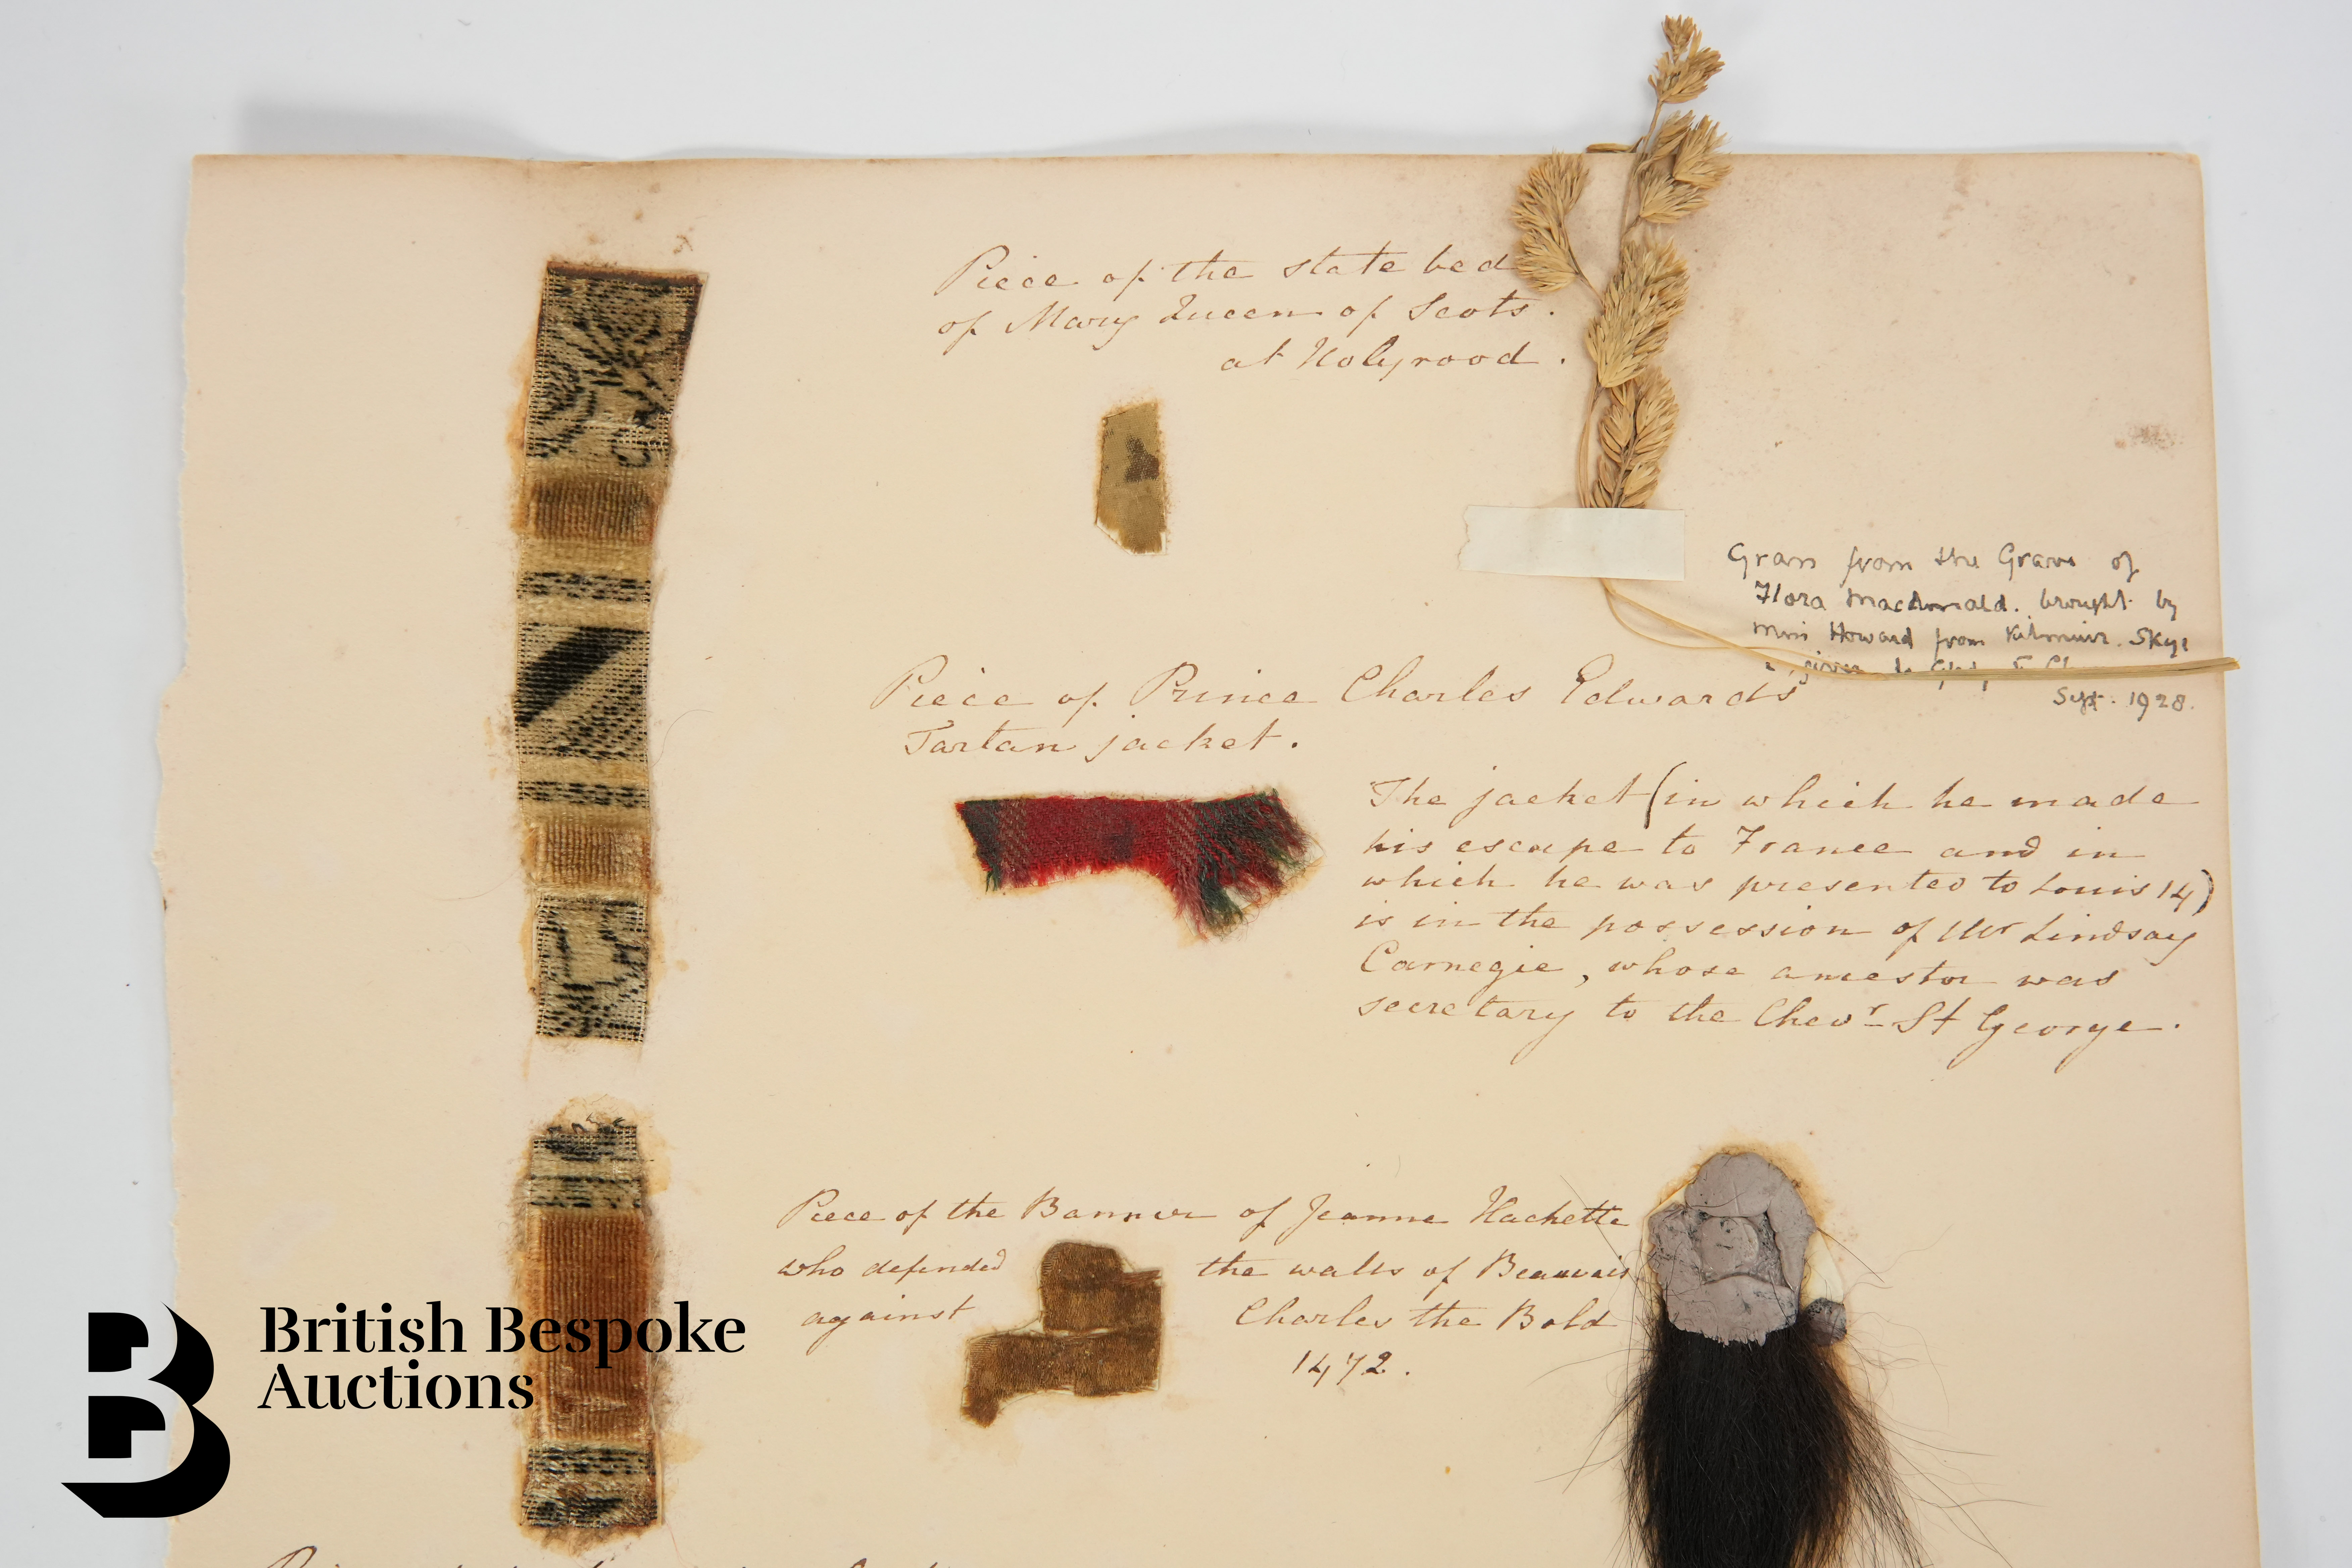 Piece of the state bed
of Mary Queen of Scots.
at Holyrood.
Grass from the Grave of
Flora Macdonald. brought by
Miss Howard from Kilmuir. Skye
given to
Sept. 1928.
Piece of Prince Charles Edwards'
Tartan jacket.
The jacket (in which he made
his escape to France and in
which he was presented to Louis 14)
is in the possession of Mr Lindsay
Carnegie, whose ancestor was
secretary to the Chevr St George.
Piece of the Banner of Jeanne Hachette
who defended the walls of Beauvais
against Charles the Bold
1472.
British Bespoke
Auctions